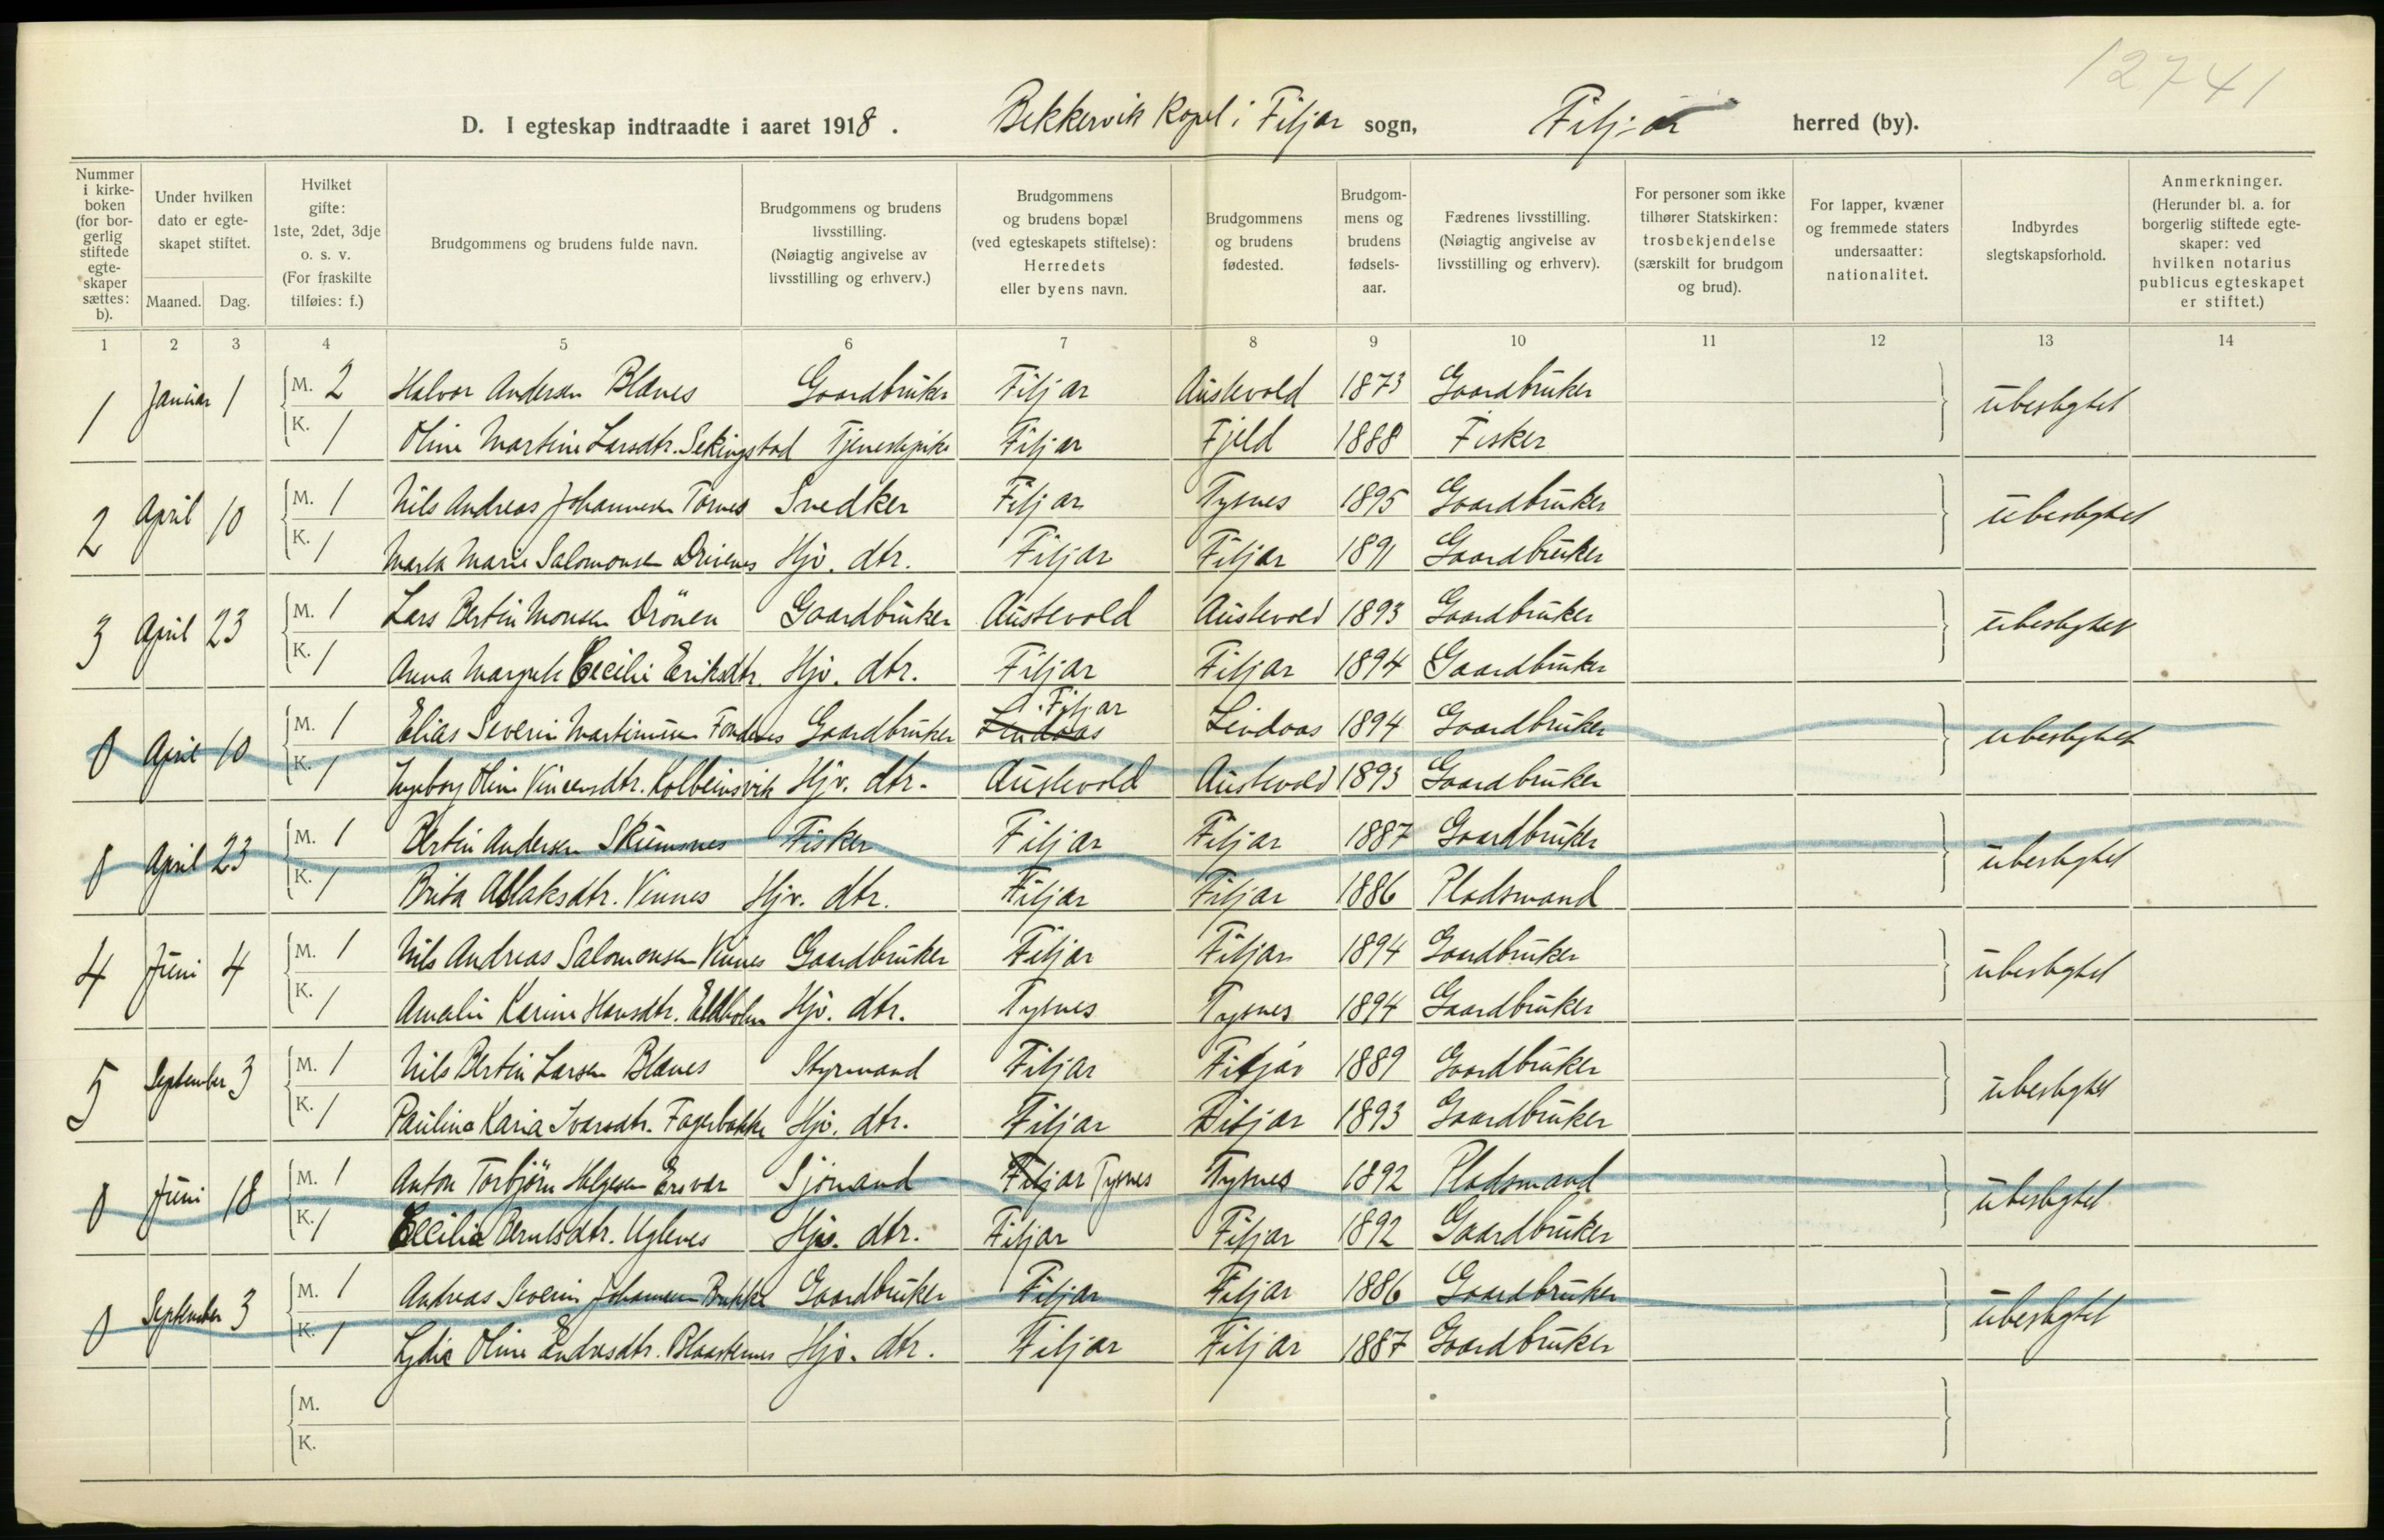 12741
D. I egteskap indtraadte i aaret 1918. Bekkervik Kapel i Fitjar sogn, Fitjar herred (by).
Nummer i kirke-boken (for bor-gerlig stiftede egte-skaper sættes: b).
Under hvilken dato er egte-skapet stiftet.
Maaned. Dag.
Hvilket gifte: 1ste, 2det, 3dje o. s. v. (For fraskilte tilføies: f.)
Brudgommens og brudens fulde navn.
Brudgommens og brudens livsstilling. (Nøiagtig angivelse av livsstilling og erhverv.)
Brudgommens og brudens bopæl (ved egteskapets stiftelse): Herredets eller byens navn.
Brudgommens og brudens fødested.
Brudgom-mens og brudens fødsels-aar.
Fædrenes livsstilling. (Nøiagtig angivelse av livsstilling og erhverv).
For personer som ikke tilhører Statskirken: trosbekjendelse (særskilt for brudgom og brud).
For lapper, kvæner og fremmede staters undersaatter: nationalitet.
Indbyrdes slegtskapsforhold.
Anmerkninger. (Herunder bl. a. for borgerlig stiftede egte-skaper: ved hvilken notarius publicus egteskapet er stiftet.)
1 2 3 4 5 6 7 8 9 10 11 12 13 14
1 Januar 1 M. 2 Halvor Andersen Blanes Gaardbruker Fitjar Austevold 1873 Gaardbruker ubeslegtet
K. 1 Oline Martine Larsdtr. Sekingstad Tjenestepike Fitjar Fjeld 1888 Fisker
2 April 10 M. 1 Nils Andreas Johannesen Tornes Snedker Fitjar Tysnes 1895 Gaardbruker ubeslegtet
K. 1 Marta Marie Salomonsen Drivenes Hjv. dtr. Fitjar Fitjar 1891 Gaardbruker
3 April 23 M. 1 Lars Bertin Monsen Drönen Gaardbruker Austevold Austevold 1893 Gaardbruker ubeslegtet
K. 1 Anna Margrete Cecilie Eriksdtr. Hjv. dtr. Fitjar Fitjar 1894 Gaardbruker
0 April 10 M. 1 Elias Severin Martinusen Fondenes Gaardbruker Lindaas Fitjar Lindaas 1894 Gaardbruker ubeslegtet
K. 1 Ingeborg Oline Vincensdtr. Kolbeinsvik Hjv. dtr. Austevold Austevold 1893 Gaardbruker
0 April 23 M. 1 Bertin Andersen Skumsnes Fisker Fitjar Fitjar 1887 Gaardbruker ubeslegtet
K. 1 Brita Aslaksdtr. Vinnes Hjv. dtr. Fitjar Fitjar 1886 Pladsmand
4 Juni 4 M. 1 Nils Andreas Salomonsen Vinnes Gaardbruker Fitjar Fitjar 1894 Gaardbruker ubeslegtet
K. 1 Amalie Karine Hansdtr. Eldholm Hjv. dtr. Tysnes Tysnes 1894 Gaardbruker
5 September 3 M. 1 Nils Bertin Larsen Blanes Styrmand Fitjar Fitjar 1889 Gaardbruker ubeslegtet
K. 1 Pauline Karia Ivarsdtr. Fagerbakke Hjv. dtr. Fitjar Fitjar 1893 Gaardbruker
0 Juni 18 M. 1 Anton Torbjörn Helgesen Ersvær Sjömand Fitjar Tysnes Tysnes 1892 Pladsmand ubeslegtet
K. 1 Cecilie Berntsdtr. Uglenes Hjv. dtr. Fitjar Fitjar 1892 Gaardbruker
0 September 3 M. 1 Andreas Severin Johannesen Bakke Gaardbruker Fitjar Fitjar 1886 Gaardbruker ubeslegtet
K. 1 Lydia Oline Endresdtr. Hjv. dtr. Fitjar Fitjar 1887 Gaardbruker
M.
K.